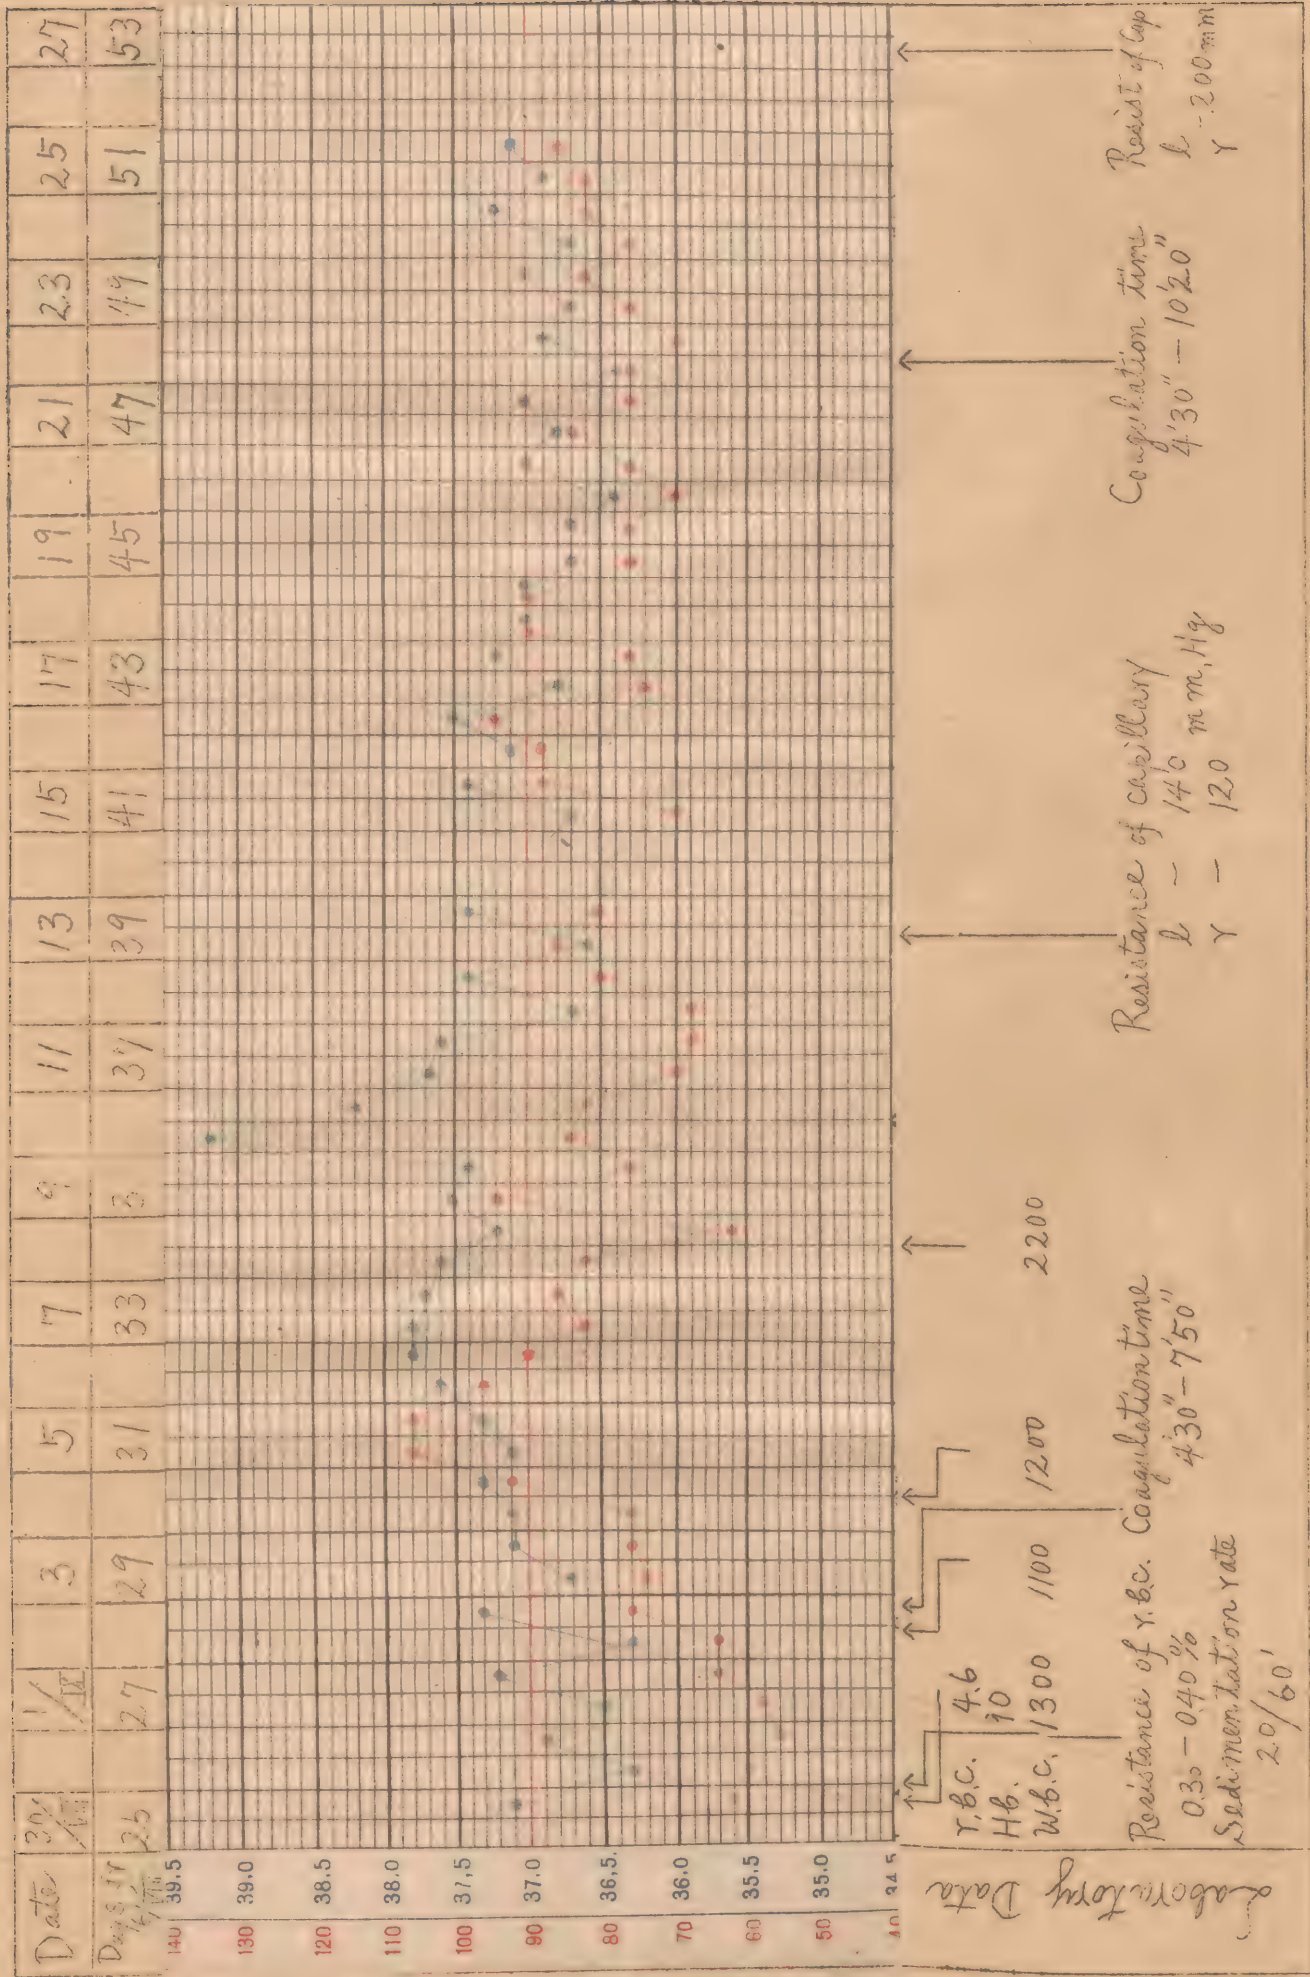 Date 30/VIII 1/IX 3 5 7 9 11 13 15 17 19 21 23 25 27
25 27 29 31 33 3 37 39 41 43 45 47 49 51 53
140 39.5
130 39.0
120 38.5
110 38.0
100 37,5
90 37.0
80 36,5.
70 36.0
60 35.5
50 35.0
40 34.5
Laboratory
Data
r.b.c. 4.6
Hb. 10
W.b.c. 1300 1100 1200 2200
Resistance of r.b.c.
0.30 - 0.40 %
Sedimentation rate
20/60'
Coagulation time
4'30" - 7'50"
Resistance of capillary
l - 140 mm,Hg
r - 120
Coagulation time
4'30" - 10'20"
Resist of Cap
l - 200 mm
r